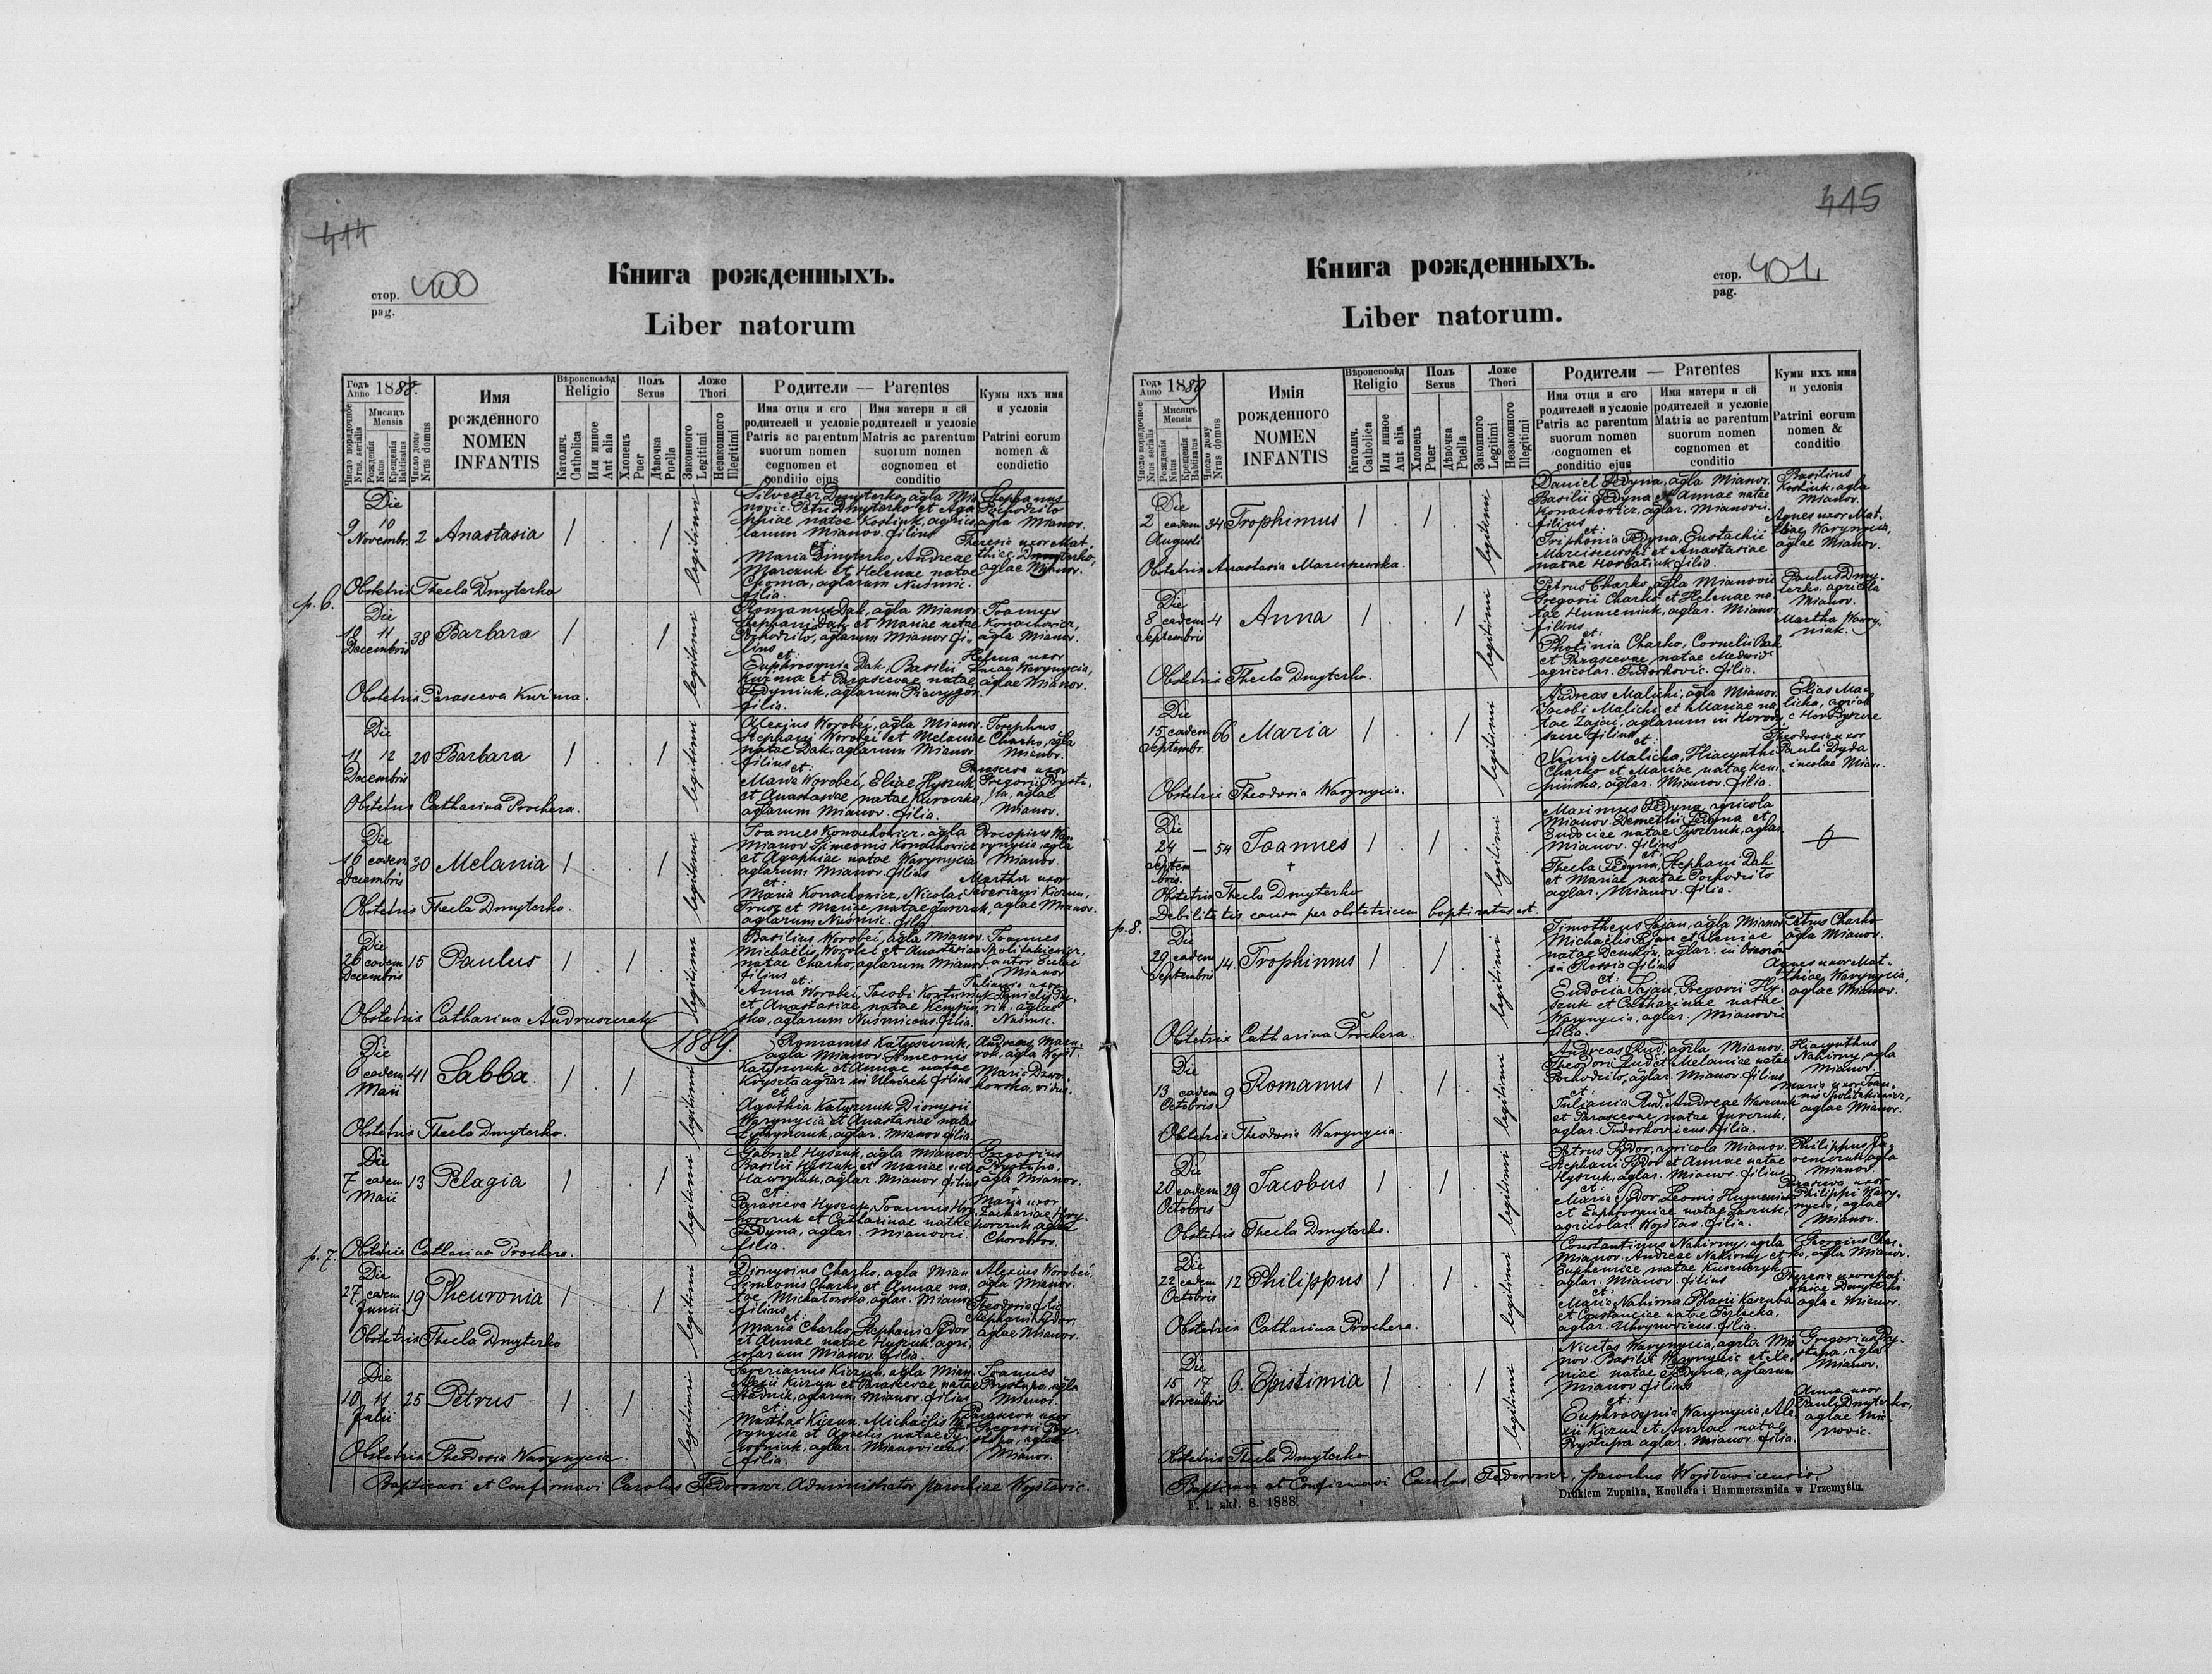 414
стор. 400
pag.
Книга рожденныхъ.
Liber natorum
Годъ 1888.
Anno
Имя
рожденного
NOMEN
INFANTIS
Вѣроисповѣд
Religio
Полъ
Sexus
Ложе
Thori
Родители — Parentes
Кумы ихъ имя
и условія
Patrini eorum
nomen &
condictio
Число порядочное
Nrus serialis
Мисяцъ
Mensis
Рожденія
Natus
Крещенія
Babtisatus
Число дому
Nrus domus
Католич.
Catholica
Или инное
Aut alia
Хлопецъ
Puer
Дѣвочка
Puella
Законного
Legitimi
Незаконного
Illegitimi
Имя отця и его
родителей и условіе
Patris ac parentum
suorum nomen
cognomen et
conditio ejus
Имя матери и єй
родителей и условіе
Matris ac parentum
suorum nomen
cognomen et
conditio
Die
9 10 2 Anastasia 1 . . 1 legitimi .
Novembr.
Silvester Dmyterko, agla Mia
novic. Petri Dmyterko et Aga
phiae natae Kostiuk, agrico
larum Mianov. filius
et:
Maria Dmyterko, Andreae
Marczuk et Helenae natae
Choma, aglarum Nuśmic.
filia.
Stephanus
Pochodziło
agla Mianov.
Theresia uxor Mat
thiae Dmyterko,
aglae Mianov.
Obstetrix Thecla Dmyterko
p. 6.
Die
10 11 38 Barbara 1 . . 1 legitimi .
Decembris
Romanus Dak, agla Mianov
Stephani Dak et Mariae natae
Pochodziło, aglarum Mianov fi
lius
et:
Euphrosynia Dak, Basilii
Kuzma et Parascevae natae
Fedyniuk, aglarum Pieczygor.
filia.
Joannes
Konachowicz,
agla Mianov.
Helena uxor
Lucae Warynycia,
aglae Mianov.
Obstetrix Parasceva Kuzma.
Die
11 12 20 Barbara 1 . . 1 legitimi .
Decembris
Alexius Worobei, agla Mianov.
Stephani Worobei et Melaniae
natae Dak, aglarum Mianov.
filius
et:
Maria Worobei, Eliae Hyszuk
et Anastasiae natae Kurowska,
aglarum Mianov. filia.
Josephus
Charko, agla
Mianov.
Parasceva uxor
Gregorii Prystu
pa, aglae
Mianov.
Obstetrix Catharina Prochera.
Die
16 eadem 30 Melania 1 . . 1 legitimi .
Decembris
Joannes Konachowicz, agla
Mianov. Simeonis Konachowicz
et Agaphiae natae Warynycia
aglarum Mianov. filius
et:
Maria Konachowicz, Nicolai
et Mariae natae
aglarum Nuśmic. filia.
Procopius Wa
rynycia, agla
Mianov.
Martha uxor
Severiani Kiczun,
aglae Mianov.
Obstetrix Thecla Dmyterko.
Die
26 eadem 15 Paulus 1 . 1 . legitimi .
Decembris
Basilius Worobei, agla Mianov.
Michaelis Worobei et Anastasiae
natae Charko, aglarum Mianov.
filius
et:
Anna Worobei, Jacobi
et Anastasiae natae
aglarum Nuśmicens. filia.
Joannes
Spolitakiewicz,
cantor Eccle
Mianov
Juliania uxor
aglae
Nuśmic.
Obstetrix Catharina Andruszczak
1889.
Die
6 eadem 41 Sabba. 1 . 1 . legitimi
Maii
Romanus Katyszczuk,
agla Mianov. Simeonis
Katyszczuk et Annae natae
aglar. in filius
et
Agathia Katyszczuk Dionysii
Warynycia et Anastasiae natae
aglar. Mianov filia.
Andreas
agla
Maria
vidua.
Obstetrix Thecla Dmyterko.
Die
7 eadem 13 Pelagia 1 . . 1 legitimi .
Maii
Gabriel Hyszuk, agla Mianov.
Basilii Hyszuk et Mariae natae
Hawryluk, aglar. Mianov. filius
et:
Parasceva Hyszuk, Joannis Hry
horczuk et Catharinae natae
Fedyna, aglar. Mianovic.
filia.
Gregorius
Prystupa,
agla Mianov.
Maria uxor
Zachariae Hry
horczuk, aglae
Chorobrov.
p. 7.
Obstetrix Catharina Prochera.
Die
27 eadem 19 Pheuronia 1 . . 1 legitimi .
Junii
Dionysius Charko, agla Mian.
Simeonis Charko et Annae na
tae Michałowska, aglar. Mianov
filius
et:
Maria Charko, Stephani Sydor
et Annae natae Hyszuk, agri
colarum Mianov. filia.
Alexius Worobei,
agla Mianov.
Theodosia filia
Stephani Sydor,
aglae Mianov.
Obstetrix Thecla Dmyterko
Die
10 11 25 Petrus 1 . 1 . legitimi .
Julii
Severianus Kiczun, agla Mian.
Alexii Kiczun et Parascevae natae
aglarum Mianov. filius
et:
Martha Kiczun, Michaelis Wa
rynycia et Agnetis natae
aglar. Mianovicens.
filia.
Joannes
Prystupa, agla
Mianov.
Parasceva uxor
Gregorii Pry
stupa, aglae
Mianov.
Obstetrix Theodosia Warynycia.
Baptizavi et Confirmavi Carolus Fedorowicz, Administrator parochiae Wojsławic.
415
стор. 401
pag.
Книга рожденныхъ.
Liber natorum.
Годъ 1889
Anno
Имія
рожденного
NOMEN
INFANTIS
Вѣроисповѣд
Religio
Полъ
Sexus
Ложе
Thori
Родители — Parentes
Куми ихъ имя
и условія
Patrini eorum
nomen &
conditio
Число порядочное
Nrus serialis
Мисяцъ
Mensis
Рожденія
Natus
Крещенія
Babtisatus
Число дому
Nrus domus
Католич.
Catholica
Или инное
Aut alia
Хлопецъ
Puer
Дѣвочка
Puella
Законного
Legitimi
Незаконного
Illegitimi
Имя отця и его
родителей и условіе
Patris ac parentum
suorum nomen
cognomen et
conditio ejus
Имя матери и єй
родителей и условіе
Matris ac parentum
suorum nomen
cognomen et
conditio
Die
2 eadem 34 Trophimus 1 . 1 . legitimi .
Augusti
Daniel Fedyna, agla Mianov.
Basilii Fedyna et Annae natae
Konachowicz, aglar. Mianovic.
filius
et:
Triphonia Fedyna, Eustachii
Marciszewski et Anastasiae
natae Horbatiuk filia.
Basilius
Kostiuk, agla
Mianov.
Agnes uxor Mat
thiae Warynycia,
aglae Mianov.
Obstetrix Anastasia Marciszewska.
Die
8 eadem 4 Anna 1 . . 1 legitimi .
Septembris
Petrus Charko, agla Mianovic
Gregorii Charko et Helenae na
tae Humeniuk, aglar. Mianov
filius
et:
Photinia Charko, Cornelii Bak
et Parascevae natae Medwid
agricolar. Tudorkovic. filia.
Paulus Dmy
terko, agricola
Mianov.
Martha Wawry
niuk.
Obstetrix Thecla Dmyterko.
Die
15 eadem 66 Maria 1 . . 1 legitimi .
Septembr.
Andreas Malicki, agla Mianov.
Jacobi Malicki et Mariae na
tae Zając, aglarum in Horody
szcze filius
et:
Malicka, Hiacynthi
Charko et Mariae natae Kem
pińska, aglar. Mianov. filia.
Elias Ma
licka, agricola
e Horodyszcze
Theodosia uxor
Pauli Dyda
incolae Mian.
Obstetrix Theodosia Warynycia.
Die
24 — 54 Joannes 1 . 1 . legitimi
Septem
bris.
†
Maximus Fedyna, agricola
Mianov. Demetrii Fedyna et
Eudociae natae Tyszczuk, aglar
Mianov. filius
et:
Thecla Fedyna, Stephani Dak
et Mariae natae Pochodziło
aglar. Mianov. filia.
Obstetrix Thecla Dmyterko
Debilitatis causa per obstetricem baptizatus est.
p. 8.
Die
29 eadem 14. Trophimus 1 1 . legitimi
Septembris
Timotheus Sajan, agla Mianov
Michaelis Sajan et Xeniae
natae Demków, aglar. in
in Rossia filius
et:
Eudocia Sajan, Gregorii Hy
szuk et Catharinae natae
Warynycia, aglar. Mianovic
filia.
Petrus Charko
agla Mianov.
Agnes uxor Mat
thiae Warynycia,
aglae Mianov.
Obstetrix Catharina Prochera.
Die
13 eadem 9 Romanus 1 1 . legitimi
Octobris
Andreas Rud, agla Mianov.
Theodori Rud et Melaniae natae
Pochodziło, aglar. Mianov. filius
et:
Juliania Rud, Andreae
et Parascevae natae Jurczuk,
aglar. Tudorkovicens. filia.
Hiacynthus
Nahirny, agla
Mianov.
Maria uxor Joan
nis Spolitakiewicz,
aglae Mianov.
Obstetrix Theodosia Warynycia.
Die
20 eadem 29 Jacobus 1 1 . legitimi
Octobris
Petrus Sydor, agricola Mianov.
Stephani Sydor et Annae natae
Hyszuk, aglar. Mianov. filius
et:
Maria Sydor, Leonis Humeniuk
et Euphrosyniae natae
agricolar. Wojsław. filia.
Philippus
agla
Mianov.
Parasceva uxor
Philippi Wary
nycia, aglae
Mianov.
Obstetrix Thecla Dmyterko.
Die
22 eadem 12 Philippus 1 . 1 . legitimi
Octobris
Constantinus Nahirny, agla
Mianov. Andreae Nahirny et
Euphemiae natae
aglar. Mianov. filius
et:
Maria Nahirna Blasii
et Constanciae natae
aglar. filia.
Georgius Char
ko, agla Mianov.
Theresia uxor Mat
thiae Dmyterko
aglae Mianov.
Obstetrix Catharina Prochera.
Die
15 17 6. Epistimia 1 . . 1 legitimi
Novembris
Nicetas Warynycia, agla Mia
nov. Basilii Warynycia et Xe
niae natae Fedyna, aglarum
Mianov filius
et:
Euphrosynia Warynycia, Ale
xii Kiczun et Annae natae
Prystupa aglar. Mianov. filia.
Gregorius Pry
stupa, agla
Mianov.
Anna uxor
Pauli Dmyterko,
aglae Mia
novic.
Obstetrix Thecla Dmyterko
Baptizavi et Confirmavi Carolus Fedorowicz, parochus Wojsławicensis.
F. 1. skł. 8. 1888.
Drukiem Zupnika, Knollera i Hammerszmida w Przemyślu.